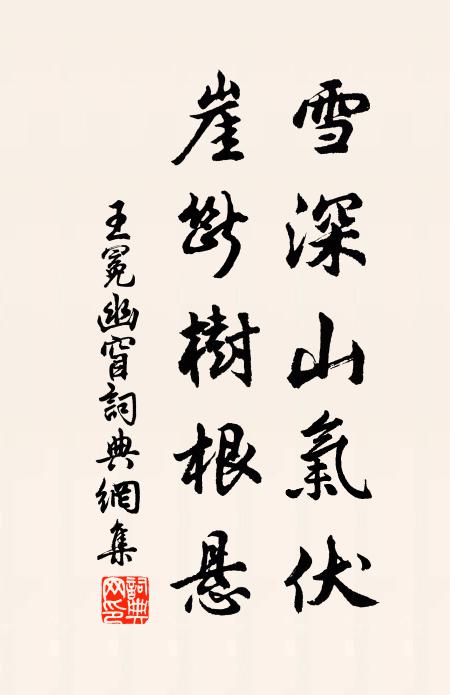 雪深山氣伏
崖斷樹根懸
王冕幽窗詞典網集
詞典網印